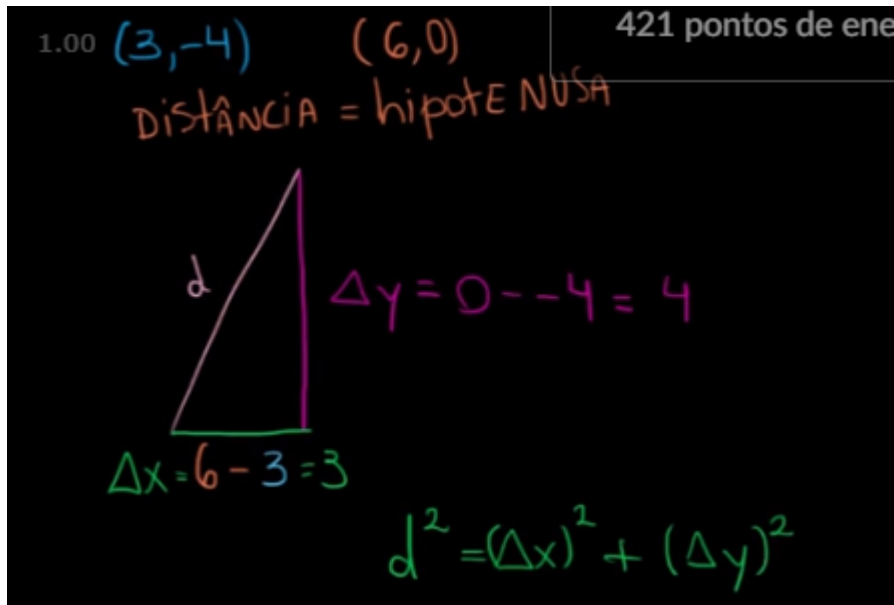 1.00 (3,-4) (6,0) 421 pontos de ene
DiStÂNCiA = hipotENUSA
d Δy = 0 - -4 = 4
Δx = 6 - 3 = 3
d² = (Δx)² + (Δy)²